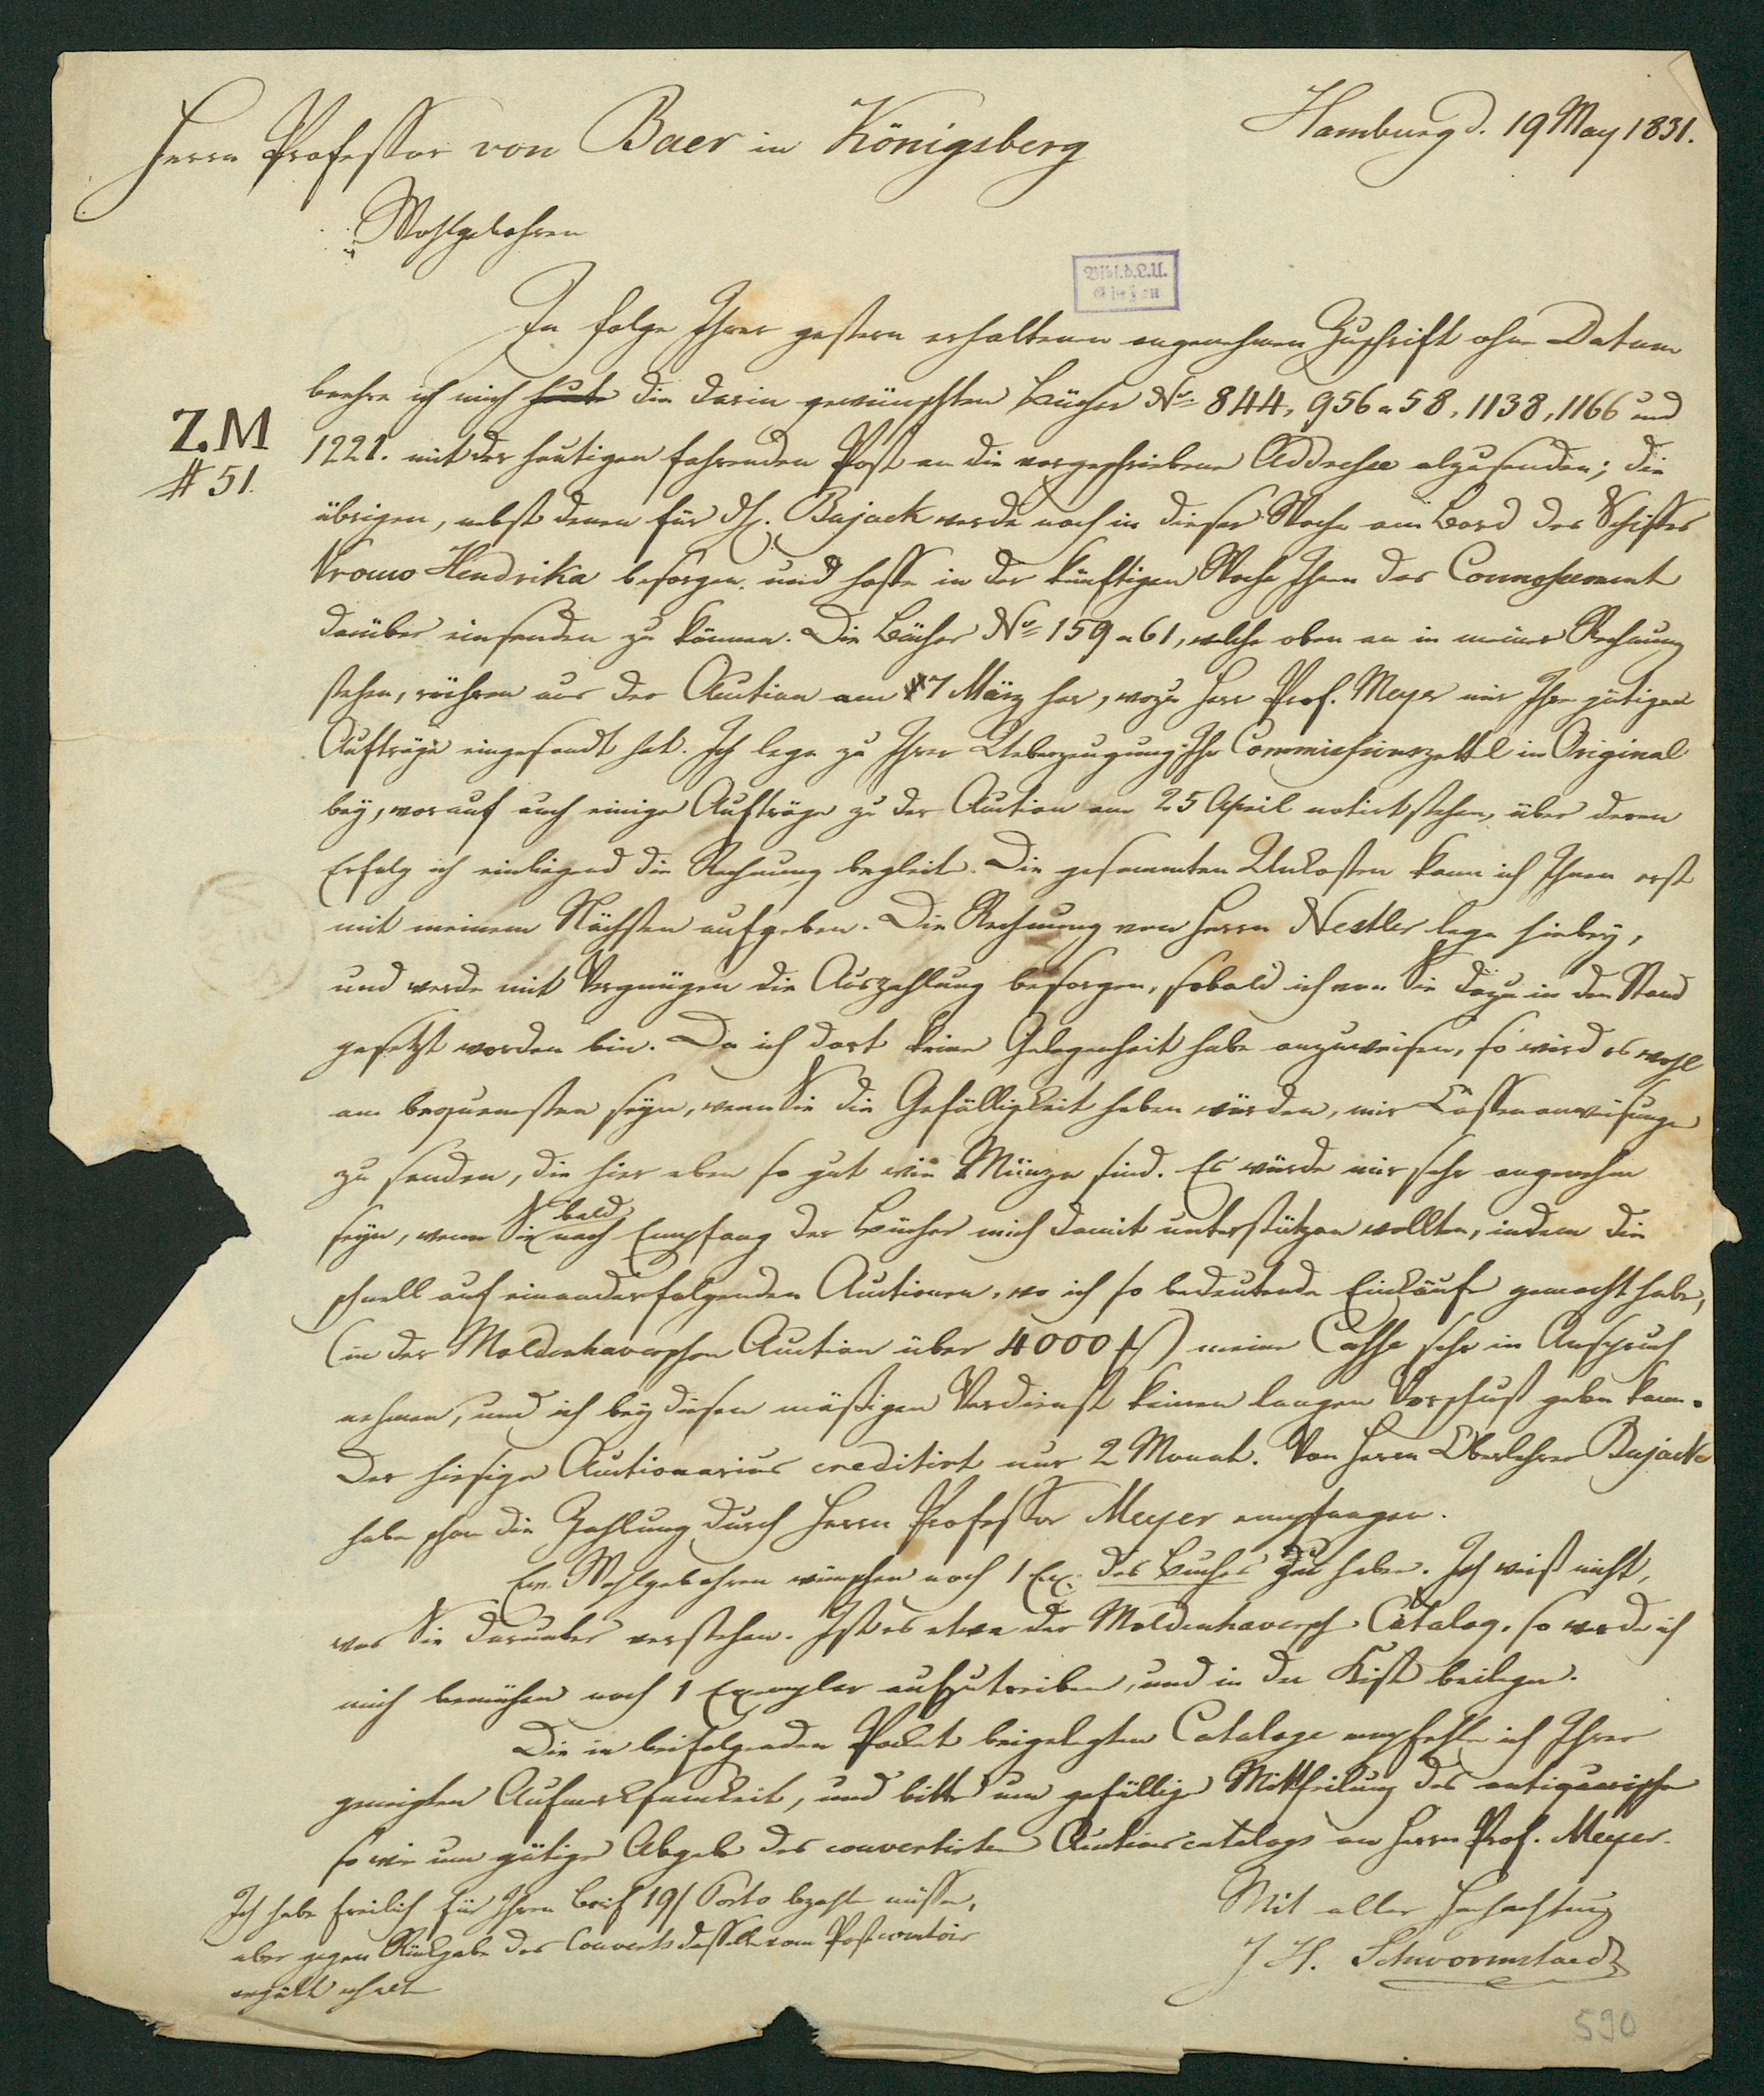 Hamburg d. 19 May 1831.
Herrn Professor von Baer in Königsberg
Wohlgebohren
Bibl.d.L.U.
Gießen
In folge Ihrer gestern erhaltenen angenehmen Zuschrift ohne Datum
beehre ich mich heute die darin gewünschten Bücher No 844, 956 a 58, 1138, 1166 und
Z.M
# 51.
1221. mit der heutigen fahrenden Post an die vorgeschriebene Addresse abzusenden; die
übrigen, nebst denen für Bujack werde noch in dieser Woche am Bord des Schiffes
Vrouw Hendrika besorgen, und hoffe in der künftigen Woche Ihnen das Connossement
darüber einsenden zu können. Die Bücher No 159 a 61, welche oben an in meiner Rechnung
stehen, rühren aus der Auction am 7 März her, wozu Herr Prof. Meyer mir Ihre gütigen
Aufträge eingesandt hat. Ich lege zu Ihrer Ueberzeugung Ihr Commissionszettel in Original
bey, worauf auch einige Aufträge zu der Auction am 25 April notirt stehen, über deren
Erfolg ich einliegend die Rechnung begleite. Die gesammten Unkosten kann ich Ihnen erst
mit meinem Nächsten aufgeben. Die Rechnung von Herrn Nestler lege hiebey,
und werde mit Vergnügen die Auszahlung besorgen, sobald ich von Sie dazu in den Stand
gesetzt worden bin. Da ich dort keine Gelegenheit habe anzuweisen, so wird es wohl
am bequemsten seyn, wenn Sie die Gefälligkeit haben würden, mir Cassenanweisungen
zu senden, die hier eben so gut wie Münze sind. Es würde mir sehr angenehm
seyn, wenn Sie bald nach Empfang der Bücher mich damit unterstützen wollten, indem die
schnell auf einanderfolgenden Auctionen, wo ich so bedeutende Einkäufe gemacht habe,
(in der Moldenhaverschen Auction über 4000 ) meine Casse sehr in Anspruch
nehmen, und ich bey diesen mäßigen Verdienst keinen langen Vorschuß geben kann.
Der hiesige Auctionarius creditirt nur 2 Monat. Von Herrn Oberlehrer Bujack
habe schon die Zahlung durch Herrn Professor Meyer empfangen.
Ew. Wohlgebohren wünschen noch 1 Ex. des Buches zu haben. Ich weiß nicht,
was Sie darunter verstehen. Ist es etwa der Moldenhaversch. Catalog, so werde ich
mich bemühen noch 1 Exemplar aufzutreiben, und in der Kiste beilegen.
Die in beifolgenden Packet beigelegten Cataloge empfehle ich Ihrer
geneigten Aufmerksamkeit, und bitte um gefällige Mittheilung des antiquarischen
so wie um gütige Abgabe des couvertirten Auctionscatalogs an Herrn Prof. Meyer.
Ich habe freilich für Ihren Brief 19ß Porto bezahlen müssen,
aber gegen Rückgabe des Couverts dasselbe vom Postcomtoir
Mit aller Hochachtung
J H. Schwormstaedt
590